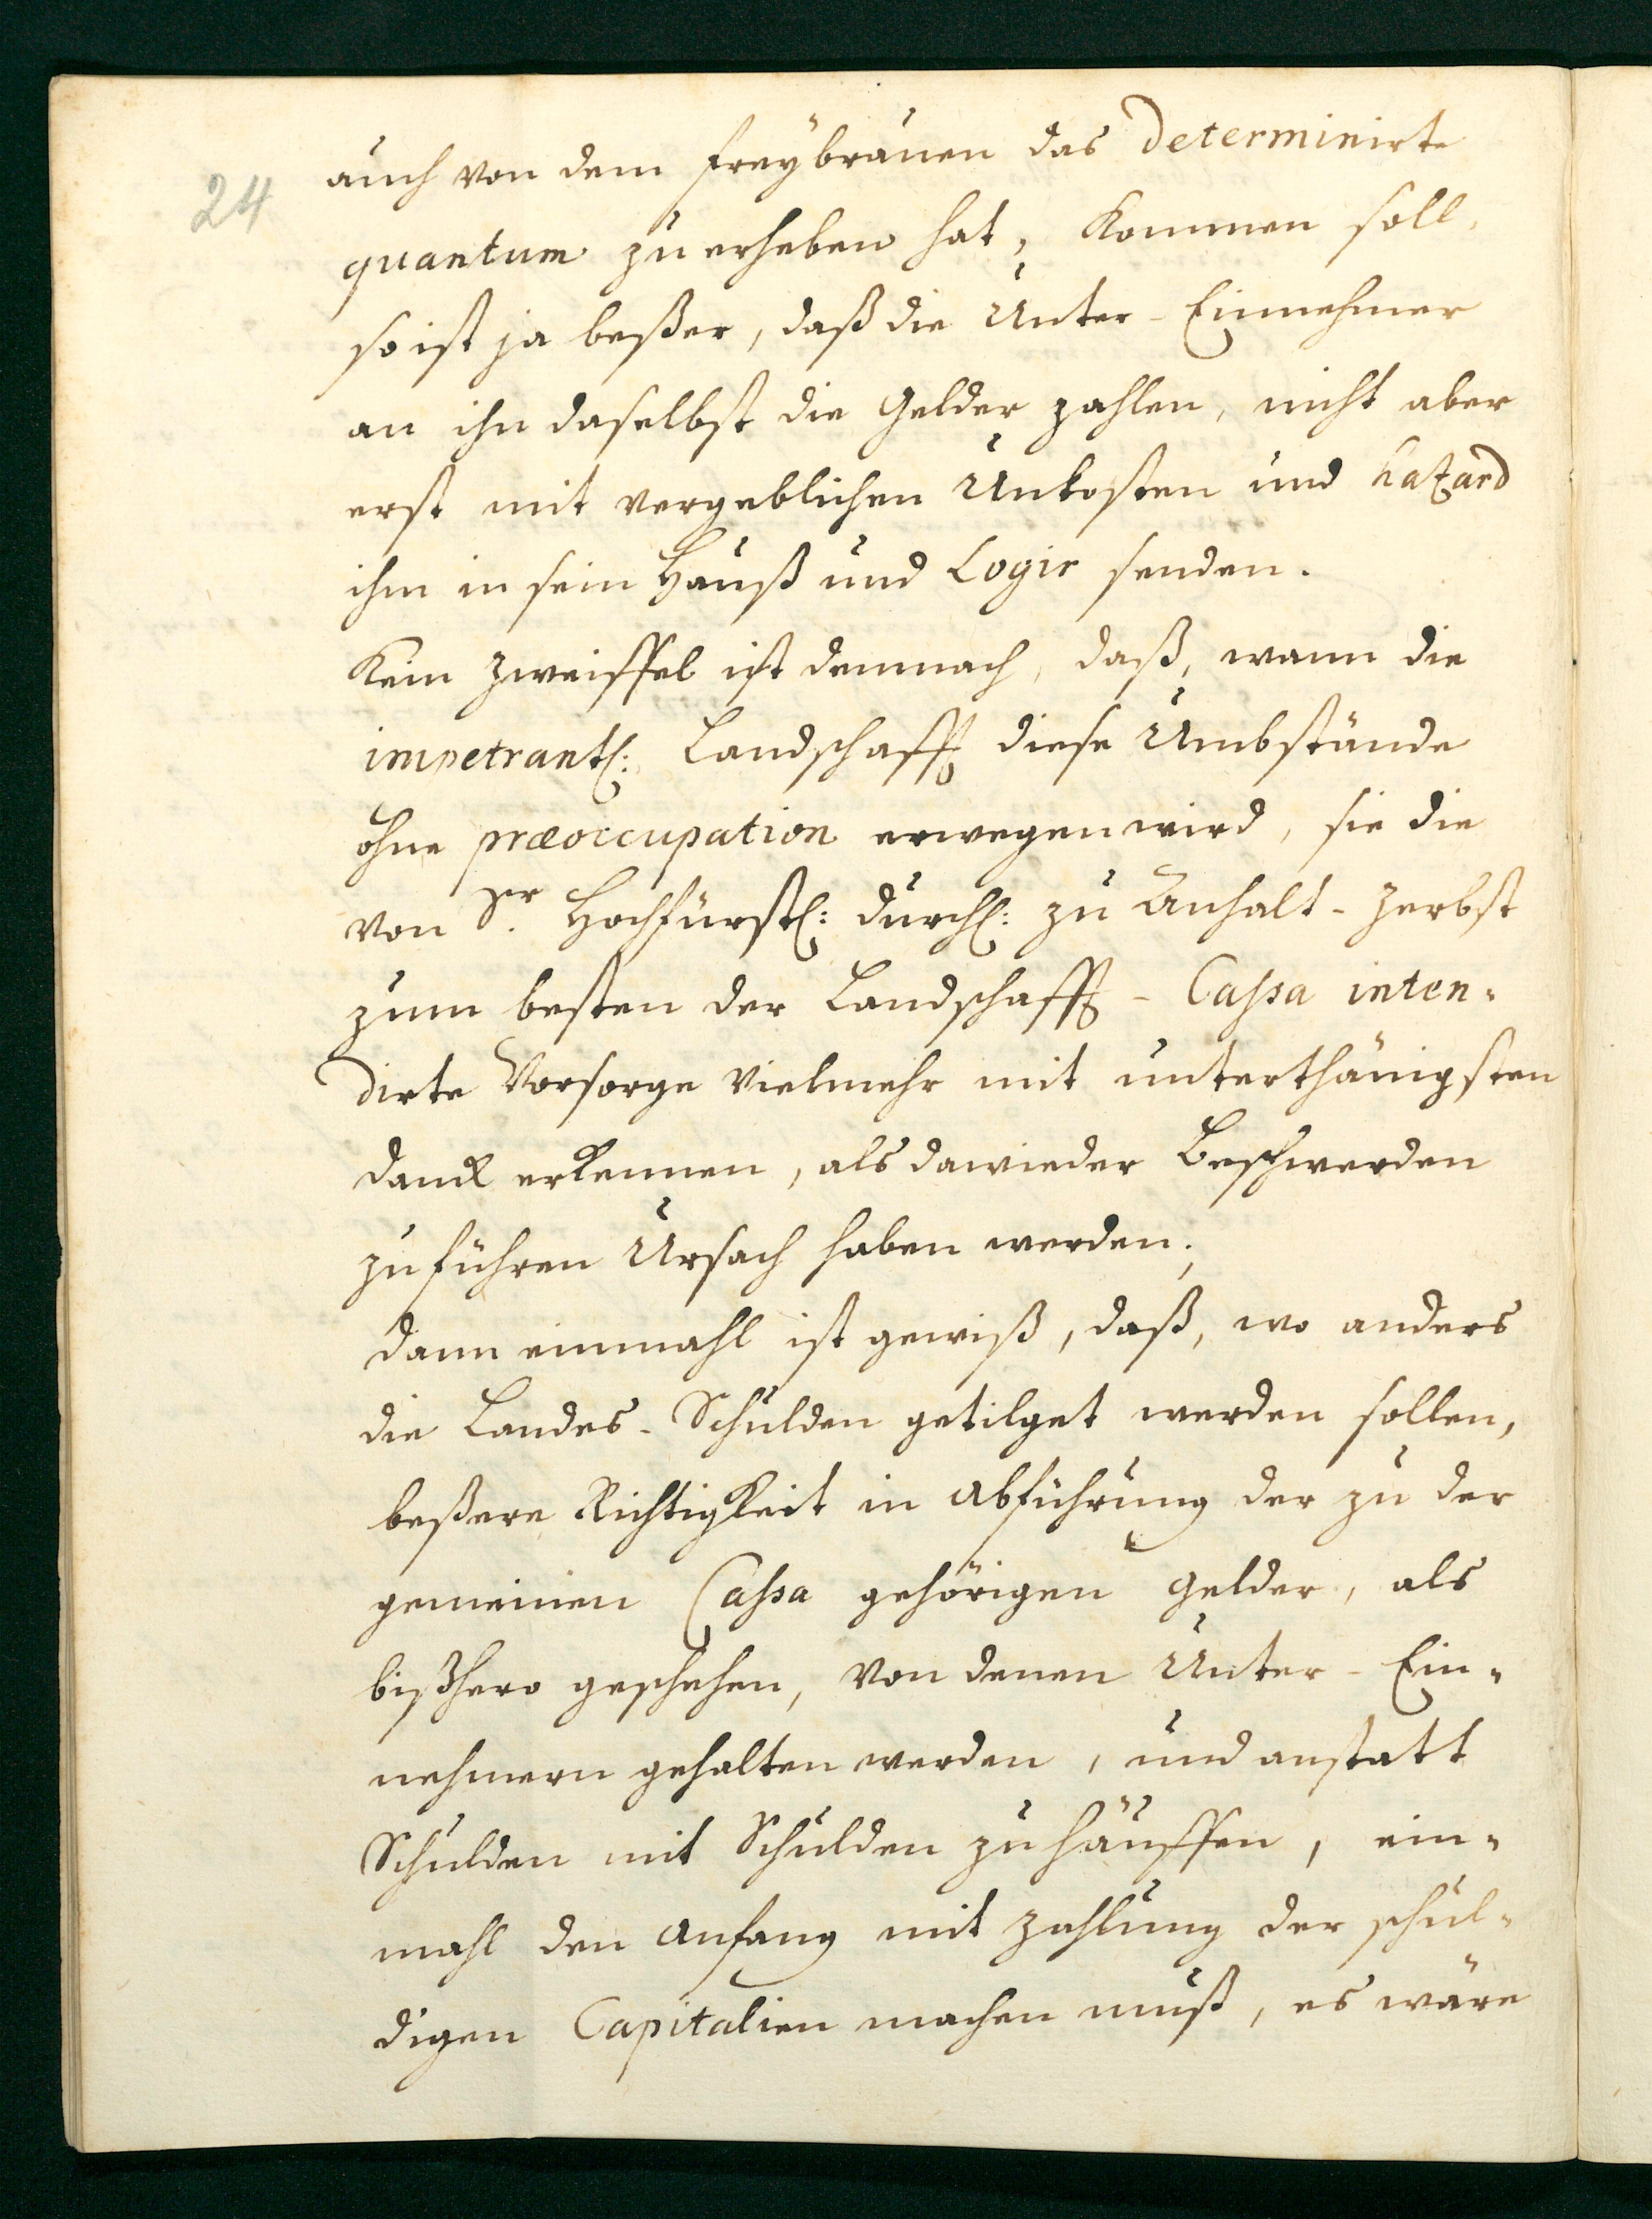 24
auch von dem freybrauen das determinirte
quantum zu erheben hat, kommen soll,
so ist ja beßer, daß die Unter-Einnehmer
an ihn daselbst die Gelder zahlen, nicht aber
erst mit vergeblichen Unkosten und hazard
ihm in sein Hauß und Logir senden.
Kein Zweiffel ist demnach, daß, wann die
impetrantl: Landschafft diese Umbstände
ohne præoccupation erwegen wird, sie die
von Sr. Hochfürstl: Durchl: zu Anhalt-Zerbst
zum besten der Landschafft-Cassa inten-
dirte Vorsorge vielmehr mit unterthänigsten
Danck erkennen, als dawieder Beschwerden
zu führen Ursach haben werden;
Dann einmahl ist gewiß, daß, wo anders
die Landes-Schulden getilget werden sollen,
beßere Richtigkeit in Abführung der zu der
gemeinen Cassa gehörigen Gelder, als
bißhero geschehen, von denen Unter-Ein-
nehmern gehalten werden, und anstatt
Schulden mit Schulden zu häuffen, ein-
mahl den Anfang mit Zahlung der schul-
digen Capitalien machen muß, es wäre